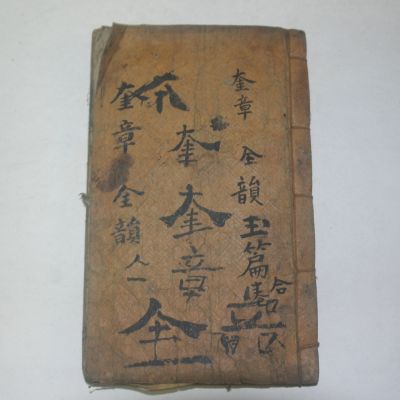 奎章
全韻
玉篇
合
奎
奎章
全
奎章
全韻